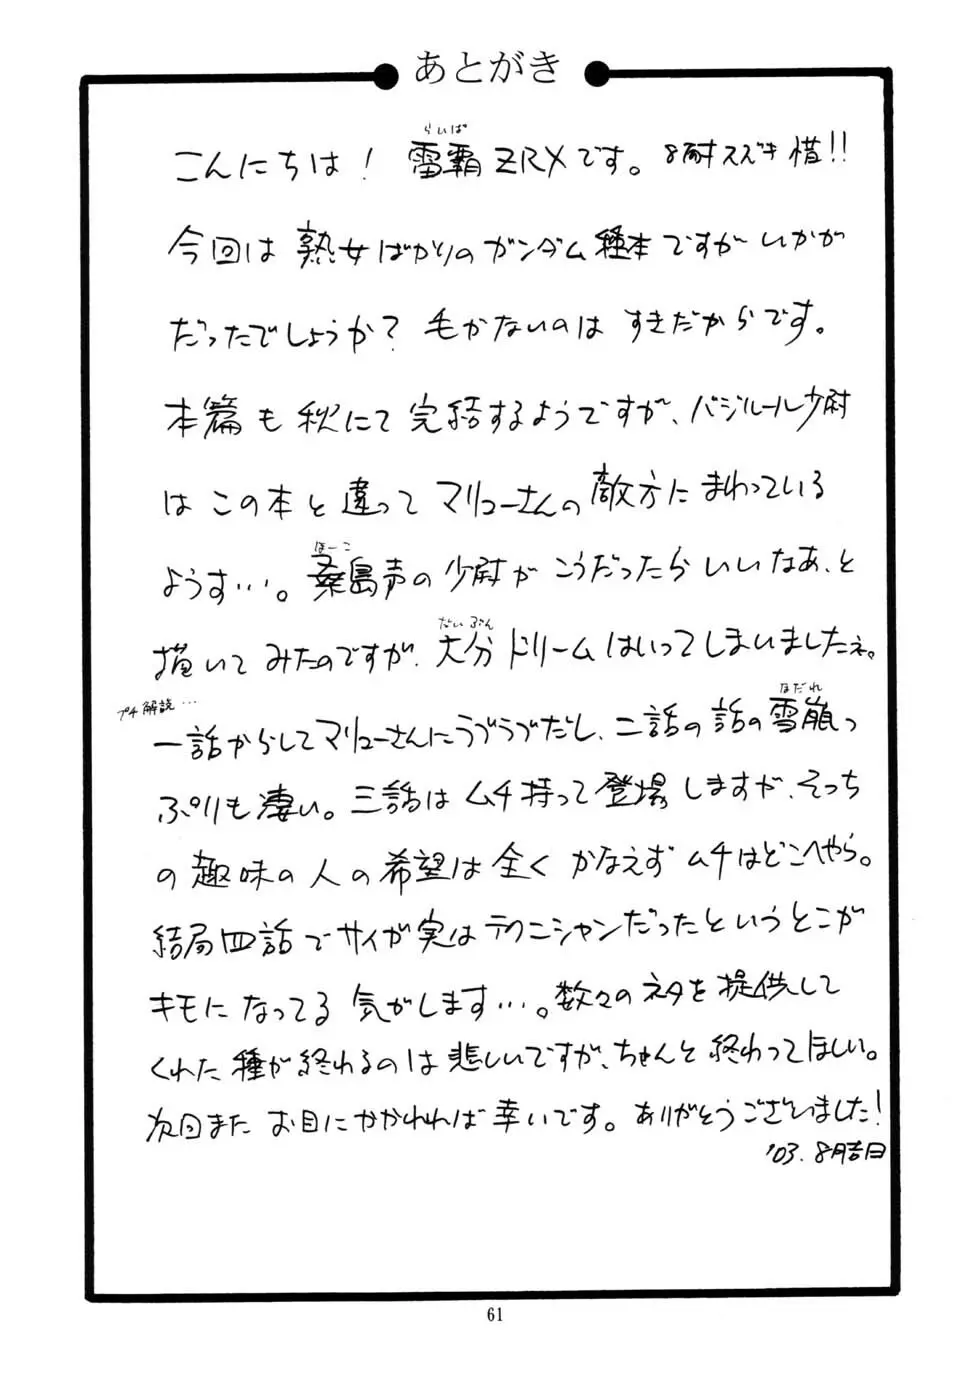 あとがき
らいぱ
こんにちは！ 雷覇ZRXです。 8耐スズキ惜!!
今回は 熟女ばかりのガンダム種本ですが いかが
だったでしょうか？ 毛がないのは すきだからです。
本篇も 秋にて 完結するようですが、バジルール少尉
は この本と 違って マリューさんの 敵方に まわっている
ほーこ
ようす…。桑島声の 少尉が こうだったら いいなあ、と
だいぶん
描いて みたのですが、大分 ドリームはいってしまいましたネ。
プチ解説…
なだれ
一話からしてマリューさんにラブラブだし、二話の話の雪崩っ
ぷりも凄い。三話は ムチ持って 登場しますが、そっち
の 趣味の 人の 希望は 全く かなえず ムチはどこへやら。
結局四話で サイが 実は テクニシャンだったというとこが
キモに なってる 気がします…。数々の ネタを 提供して
くれた 種が 終わるのは 悲しいですが、ちゃんと 終わってほしい。
次回また お目に かかわれば 幸いです。 ありがとうございました！
'03. 8月吉日
61